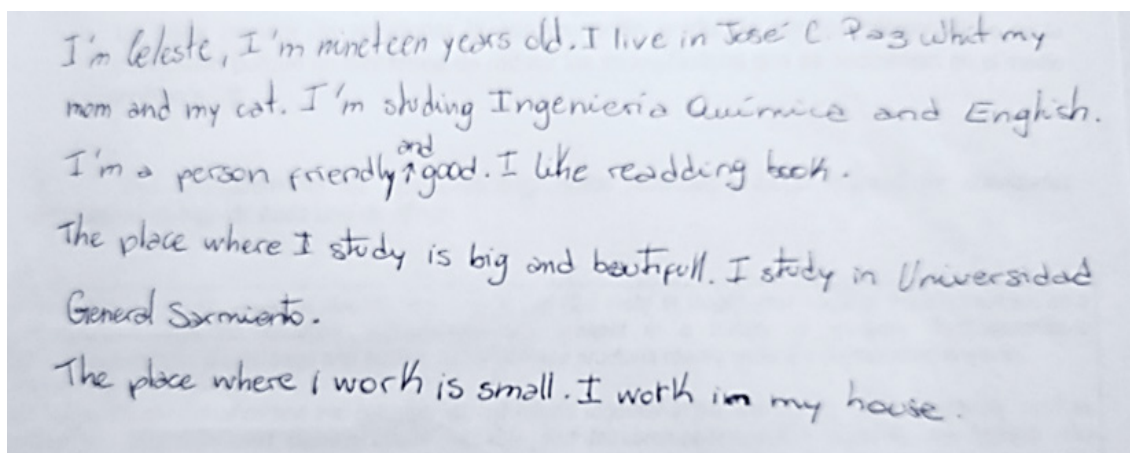 I'm Celeste, I'm nineteen years old. I live in José C. Paz whit my
mom and my cat. I'm studing Ingenieria Quimica and English.
I'm a person friendly and good. I like readding book.
The place where I study is big and beutifull. I study in Universidad
General Sarmiento.
The place where i work is small. I work im my house.